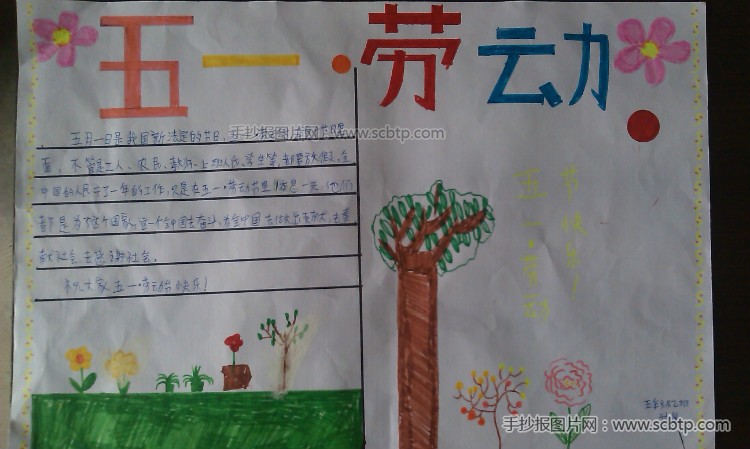 五一·劳动
五月一日是我国新法定的节日,
面,不管是工人、农民、教师、上班人民、学生等,都要放假,全
中国的人民干了一年的工作,只是在五一·劳动节里休息一天,他们
都是为了这个国家,
献社会,去感谢社会。
祝大家五一·劳动节快乐!
五一·劳动
节快乐!
手抄报图片网 www.scbtp.com
手抄报图片网:www.scbtp.com